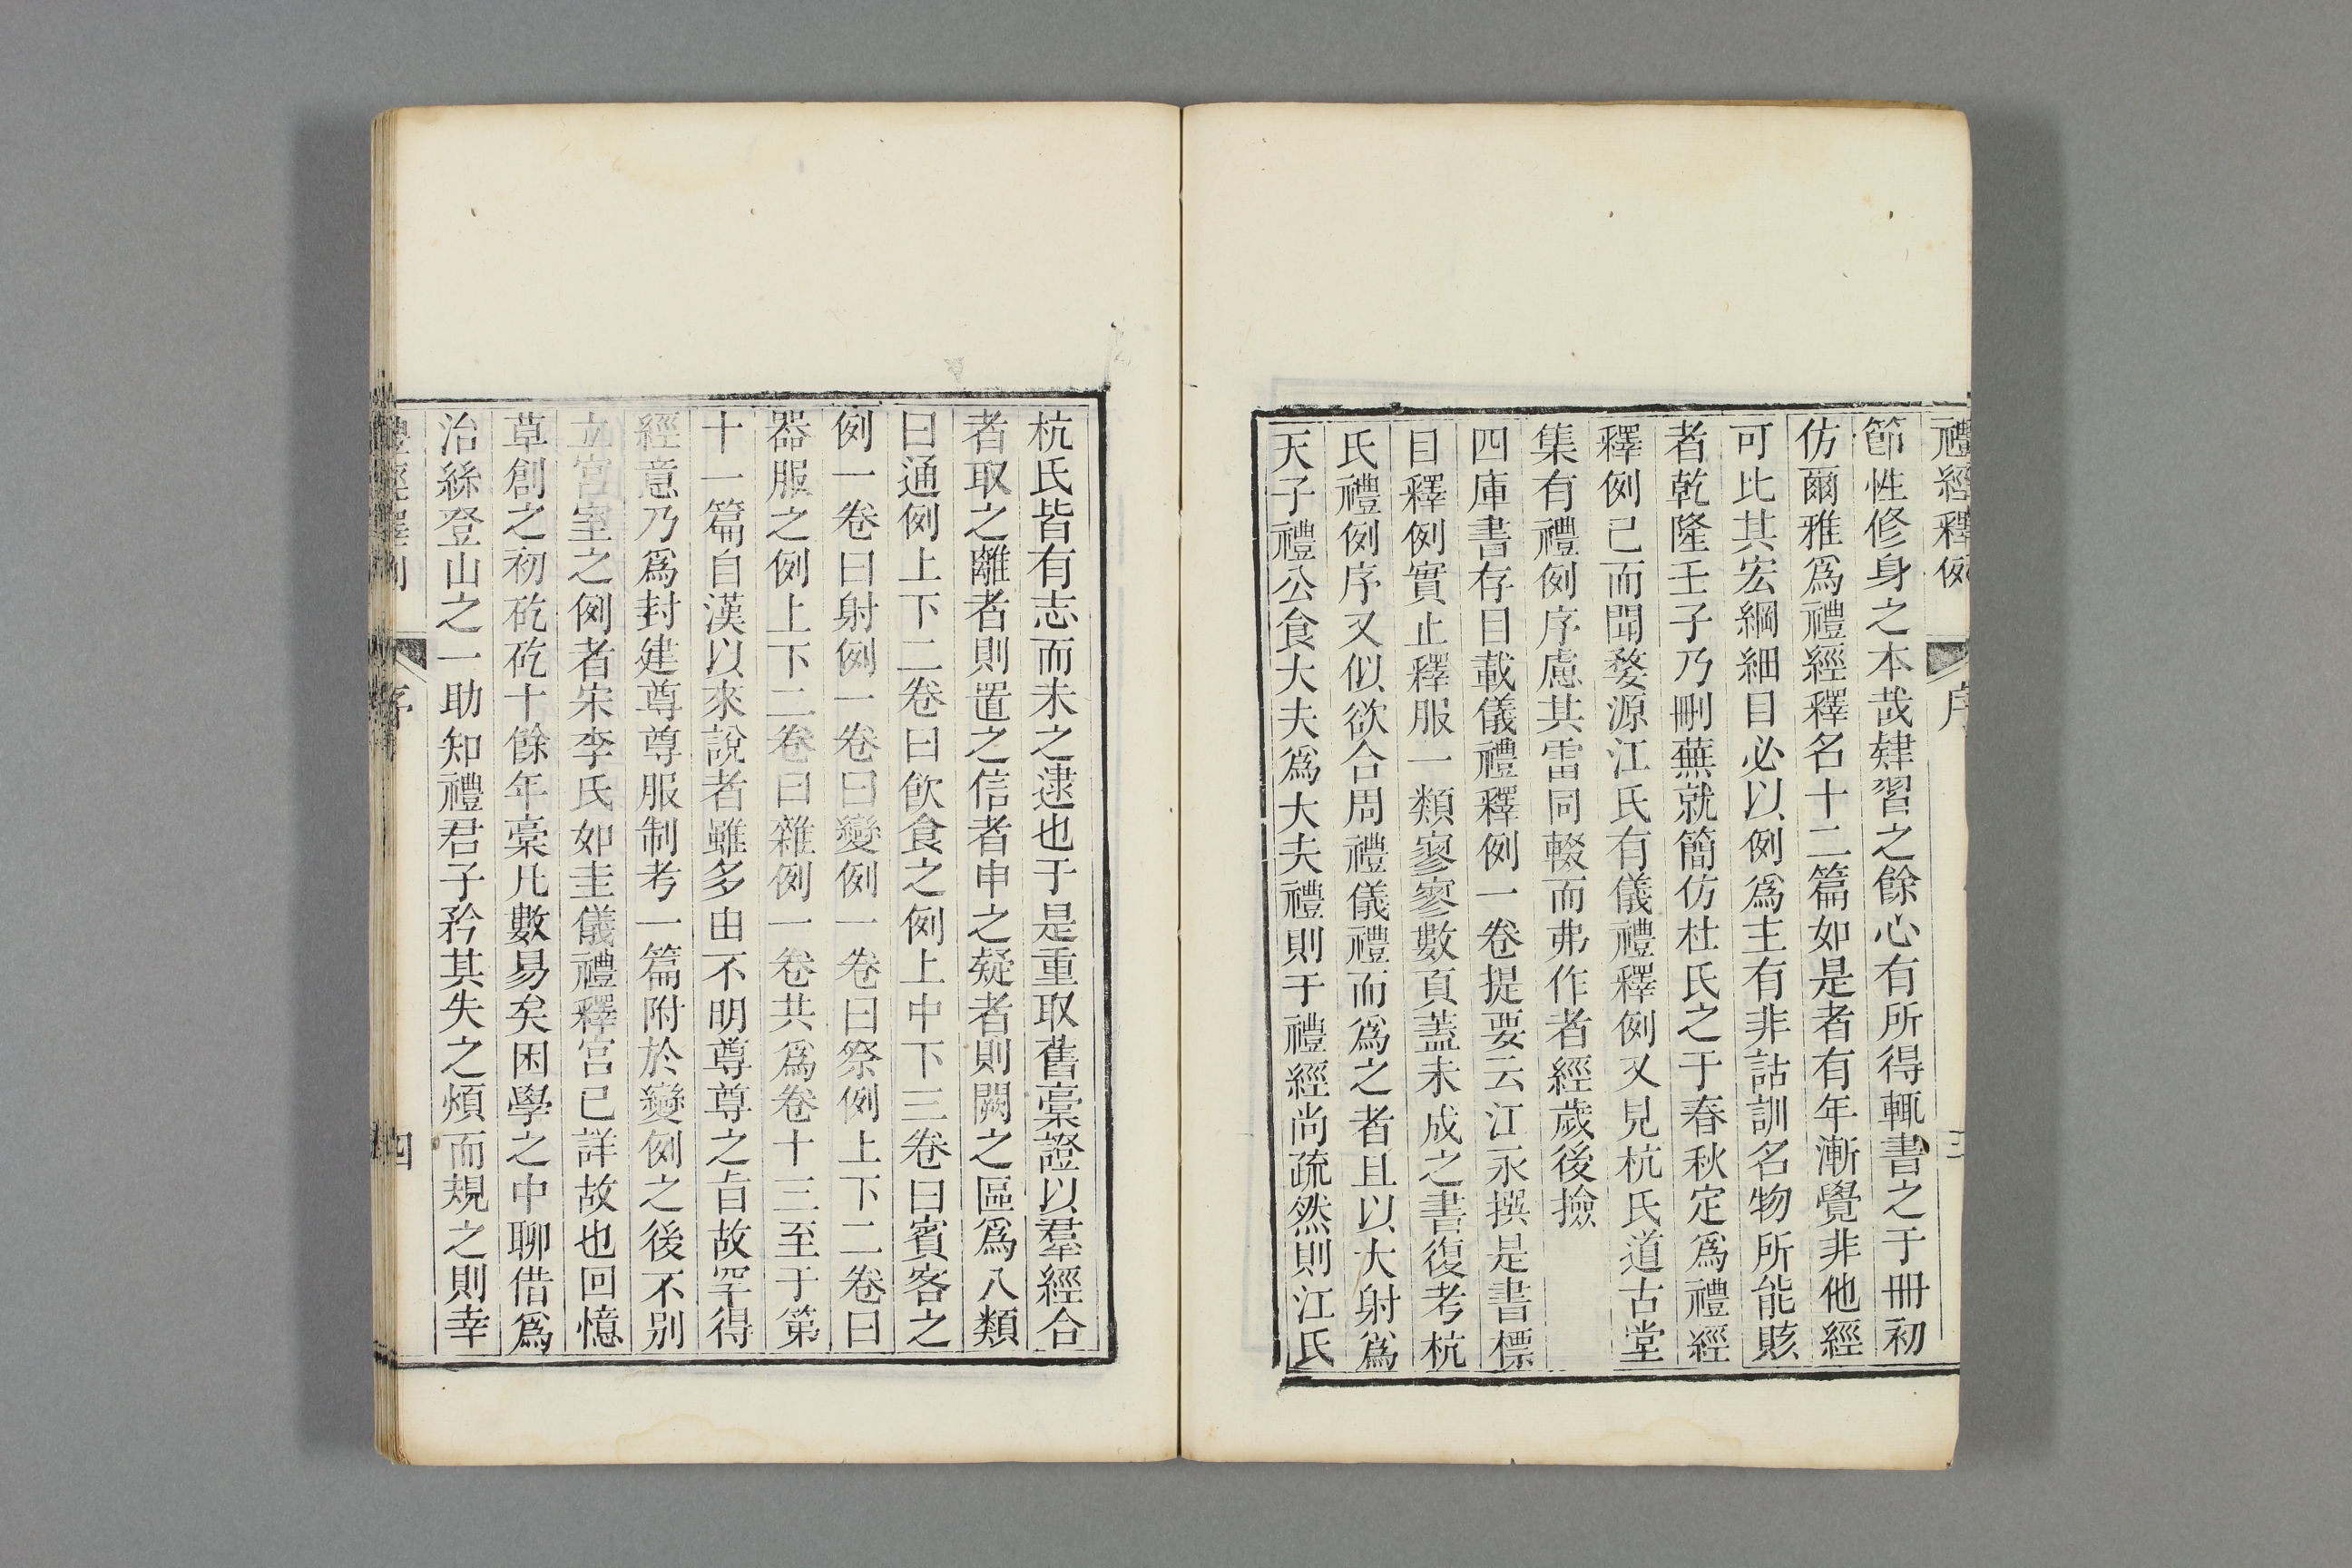 禮經釋例 序 三
節性修身之本哉肄習之餘心有所得輒書之于冊初
仿爾雅爲禮經釋名十二篇如是者有年漸覺非他經
可比其宏綱細目必以例爲主有非詁訓名物所能賅
者乾隆壬子乃刪蕪就簡仿杜氏之于春秋定爲禮經
釋例已而聞婺源江氏有儀禮釋例又見杭氏道古堂
集有禮例序慮其雷同輟而弗作者經歲後撿
四庫書存目載儀禮釋例一卷提要云江永撰是書標
目釋例實止釋服一類寥寥數頁蓋未成之書復考杭
氏禮例序又似欲合周禮儀禮而爲之者且以大射爲
天子禮公食大夫爲大夫禮則于禮經尚疏然則江氏
杭氏皆有志而未之逮也于是重取舊稾證以羣經合
者取之離者則置之信者申之疑者則闕之區爲八類
曰通例上下二卷曰飲食之例上中下三卷曰賓客之
例一卷曰射例一卷曰變例一卷曰祭例上下二卷曰
器服之例上下二卷曰雜例一卷共爲卷十三至于第
十一篇自漢以來說者雖多由不明尊尊之旨故罕得
經意乃爲封建尊尊服制考一篇附於變例之後不别
立宮室之例者宋李氏如圭儀禮釋宮已詳故也回憶
草創之初矻矻十餘年稾凡數易矣困學之中聊借爲
治絲登山之一助知禮君子矜其失之煩而規之則幸
禮經釋例 序 四